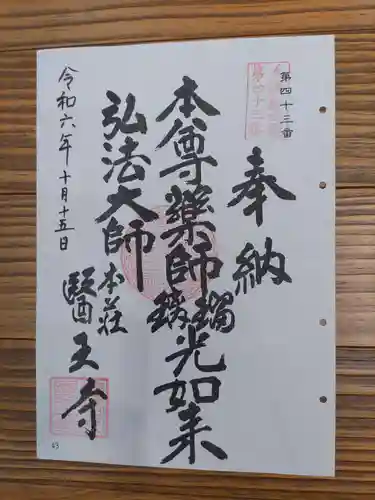 第四十三番
奉納
本尊藥師瑠璃光如来
弘法大師
本荘
醫王寺
令和六年十月十五日
43